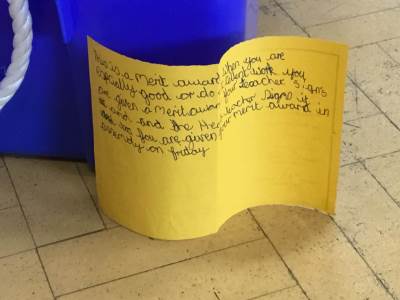 This is a merit award when you are
espically good or do excellent work you
are given a merit award your teacher signs
it and and the Head teacher signs it
and you are given your merit award in
assembly on friday